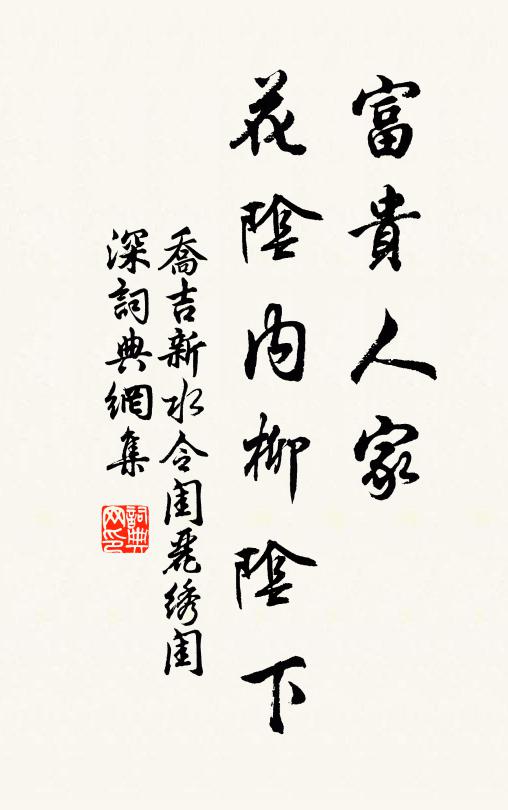 富貴人家
花陰内柳陰下
喬吉新水令閨麗绣閨
深詞典網集
詞典
网印